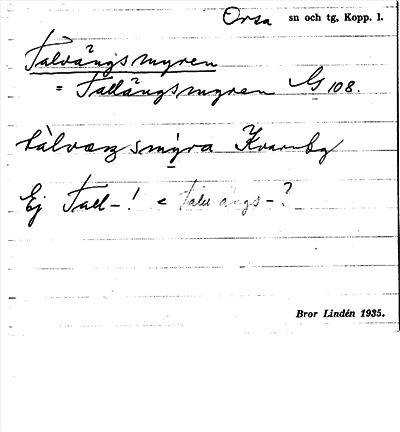 Orsa sn och tg, Kopp. l.
Talvängsmyren
= Tallängsmyren G 108.
tàlvæŋsmýra Kvarnby
Ej Tall-! < Talu ängs-?
Bror Lindén 1935.